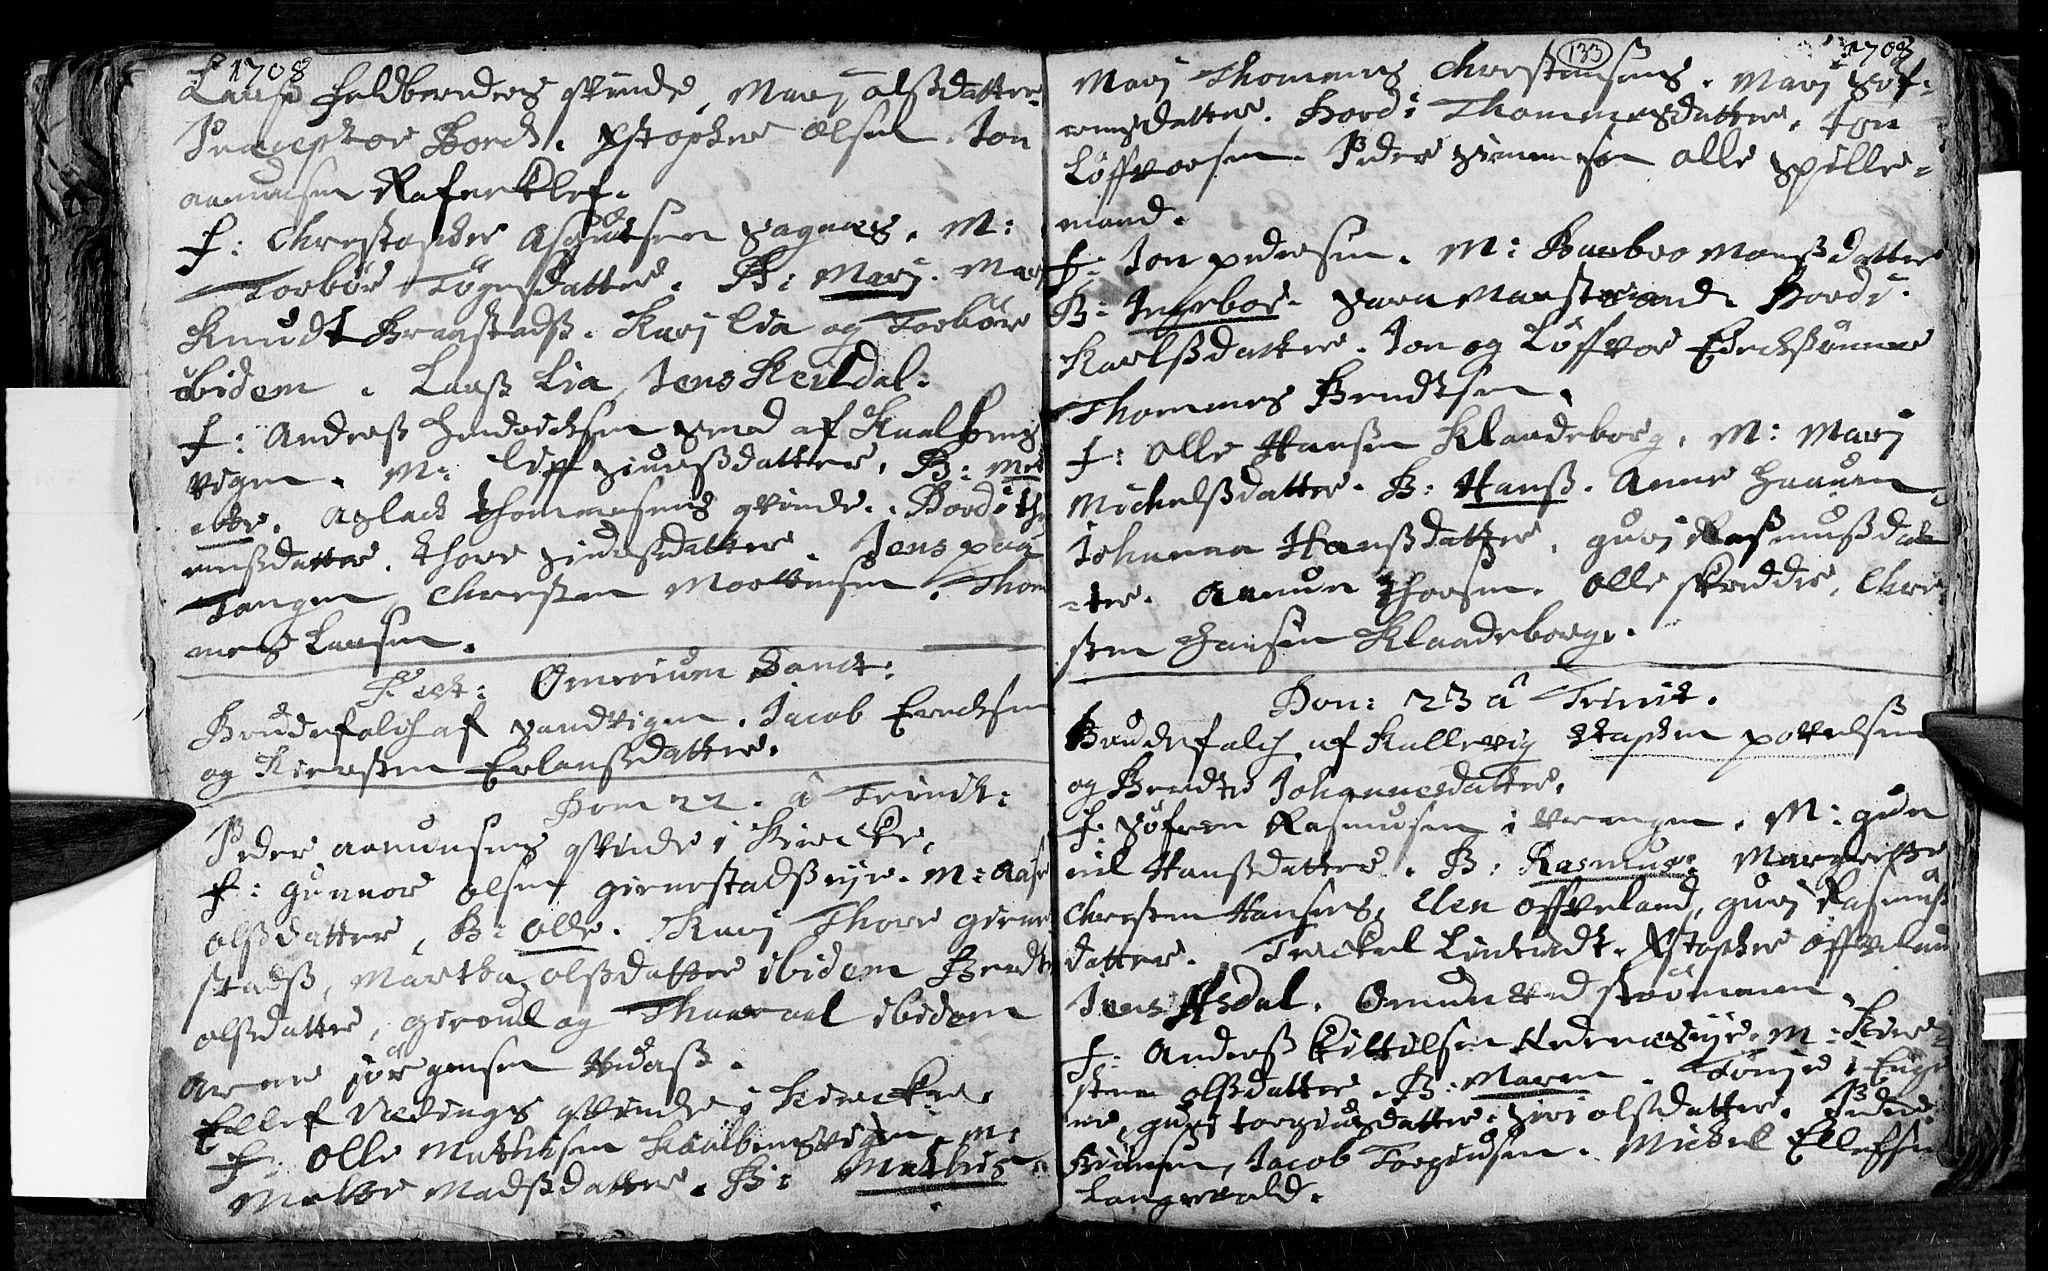 1708
Larß Feldbereders qvinde, Marj olßdatter
Præceptor Bord. Xstopher olsen. Jon
aamunsen Rafneklef.
F: Christopher Asgutsen Sagnæs. M:
Torbør Tøgersdatter. B: Marj. Marj
Knudt Braastadß. Karj Lia og Torbør
ibidem. Larß Lia, Jens Keildal.
F: Anderß Hendrichsen Smed af Kaalbens
vigen. M: Liff Siurßdatter. B: Met
ebbe. Aslack Thommesens qvinde. Bordi
enßdatter. Thore Siursdatter. Jens paa
Tangen Christen Mortensen. Thom
mes Larsen.
Fest: Omnium Sanct:
Brudefolch af Sandvigen. Jacob Erichsen
og Kiersten Erlanßdatter.
Dom 22. â Trinit:
Peder aamunsens qvinde i Kircke.
F: Gunnor olsen Gierrestadß eje. M: Aase
olßdatter, B: Olle. Karj Thore Gierre
stadß, Martha olßdatter ibidem Berthe
olßdatter, Giroul og Thaaraal ibidem
Arne Jørgensen Udaß.
Ellef Nædings qvinde i Kircken.
F: Olle Mathisen Kaalbensvigen. M:
Mette Madßdatter. B: Mathis.
133
1708
Marj Thommes Christensens. Marj Søf-
rensdatter. Bord: Thommesdatter. Jon
Løffvorsen. Peder Simensen olle Spille-
mand.
F: Jon pedersen. M: Barbro Monßdatter
B: Ingebor. Sara Marstrand. Bordi
Karlßdatter. Jon og Løffvor Erichsønner
Thommes Bendtsen.
F: Olle Hansen Klaadeborg. M: Marj
Michelßdatter. B: Hanß. Anne Haauen
Johanna Hanßdatter. gurj Rasmußdat
ter. Aamun Thorsen. Olle Skredder, Chri-
sten Hansen Klaadeborg.
Dom: 23 â Trinit.
Brudefolch af Kallevig Staphen povelsen
og Berthe Johannesdatter.
F: Søfren Rasmusen i Vrengen. M: gun
nil Hanßdatter. B: Rasmus. Margrethe
Christen Hansens, Elen Offveland, gurj Rasmuß
datter. Terckel Lintvedt. Xstopher Offvelan
Jens Assdal. Omun ved Strømmen.
F: Anderß Kittilsen Nedenæs eje. M: Kier-
sten olßdatter. B: Maren. Tonje i Enge
ne, gurj torgiusdatter. Siri olßdatter. Peder
Biørnsen, Jacob Torgiusen. Mickel Ellefsen
Langevold.